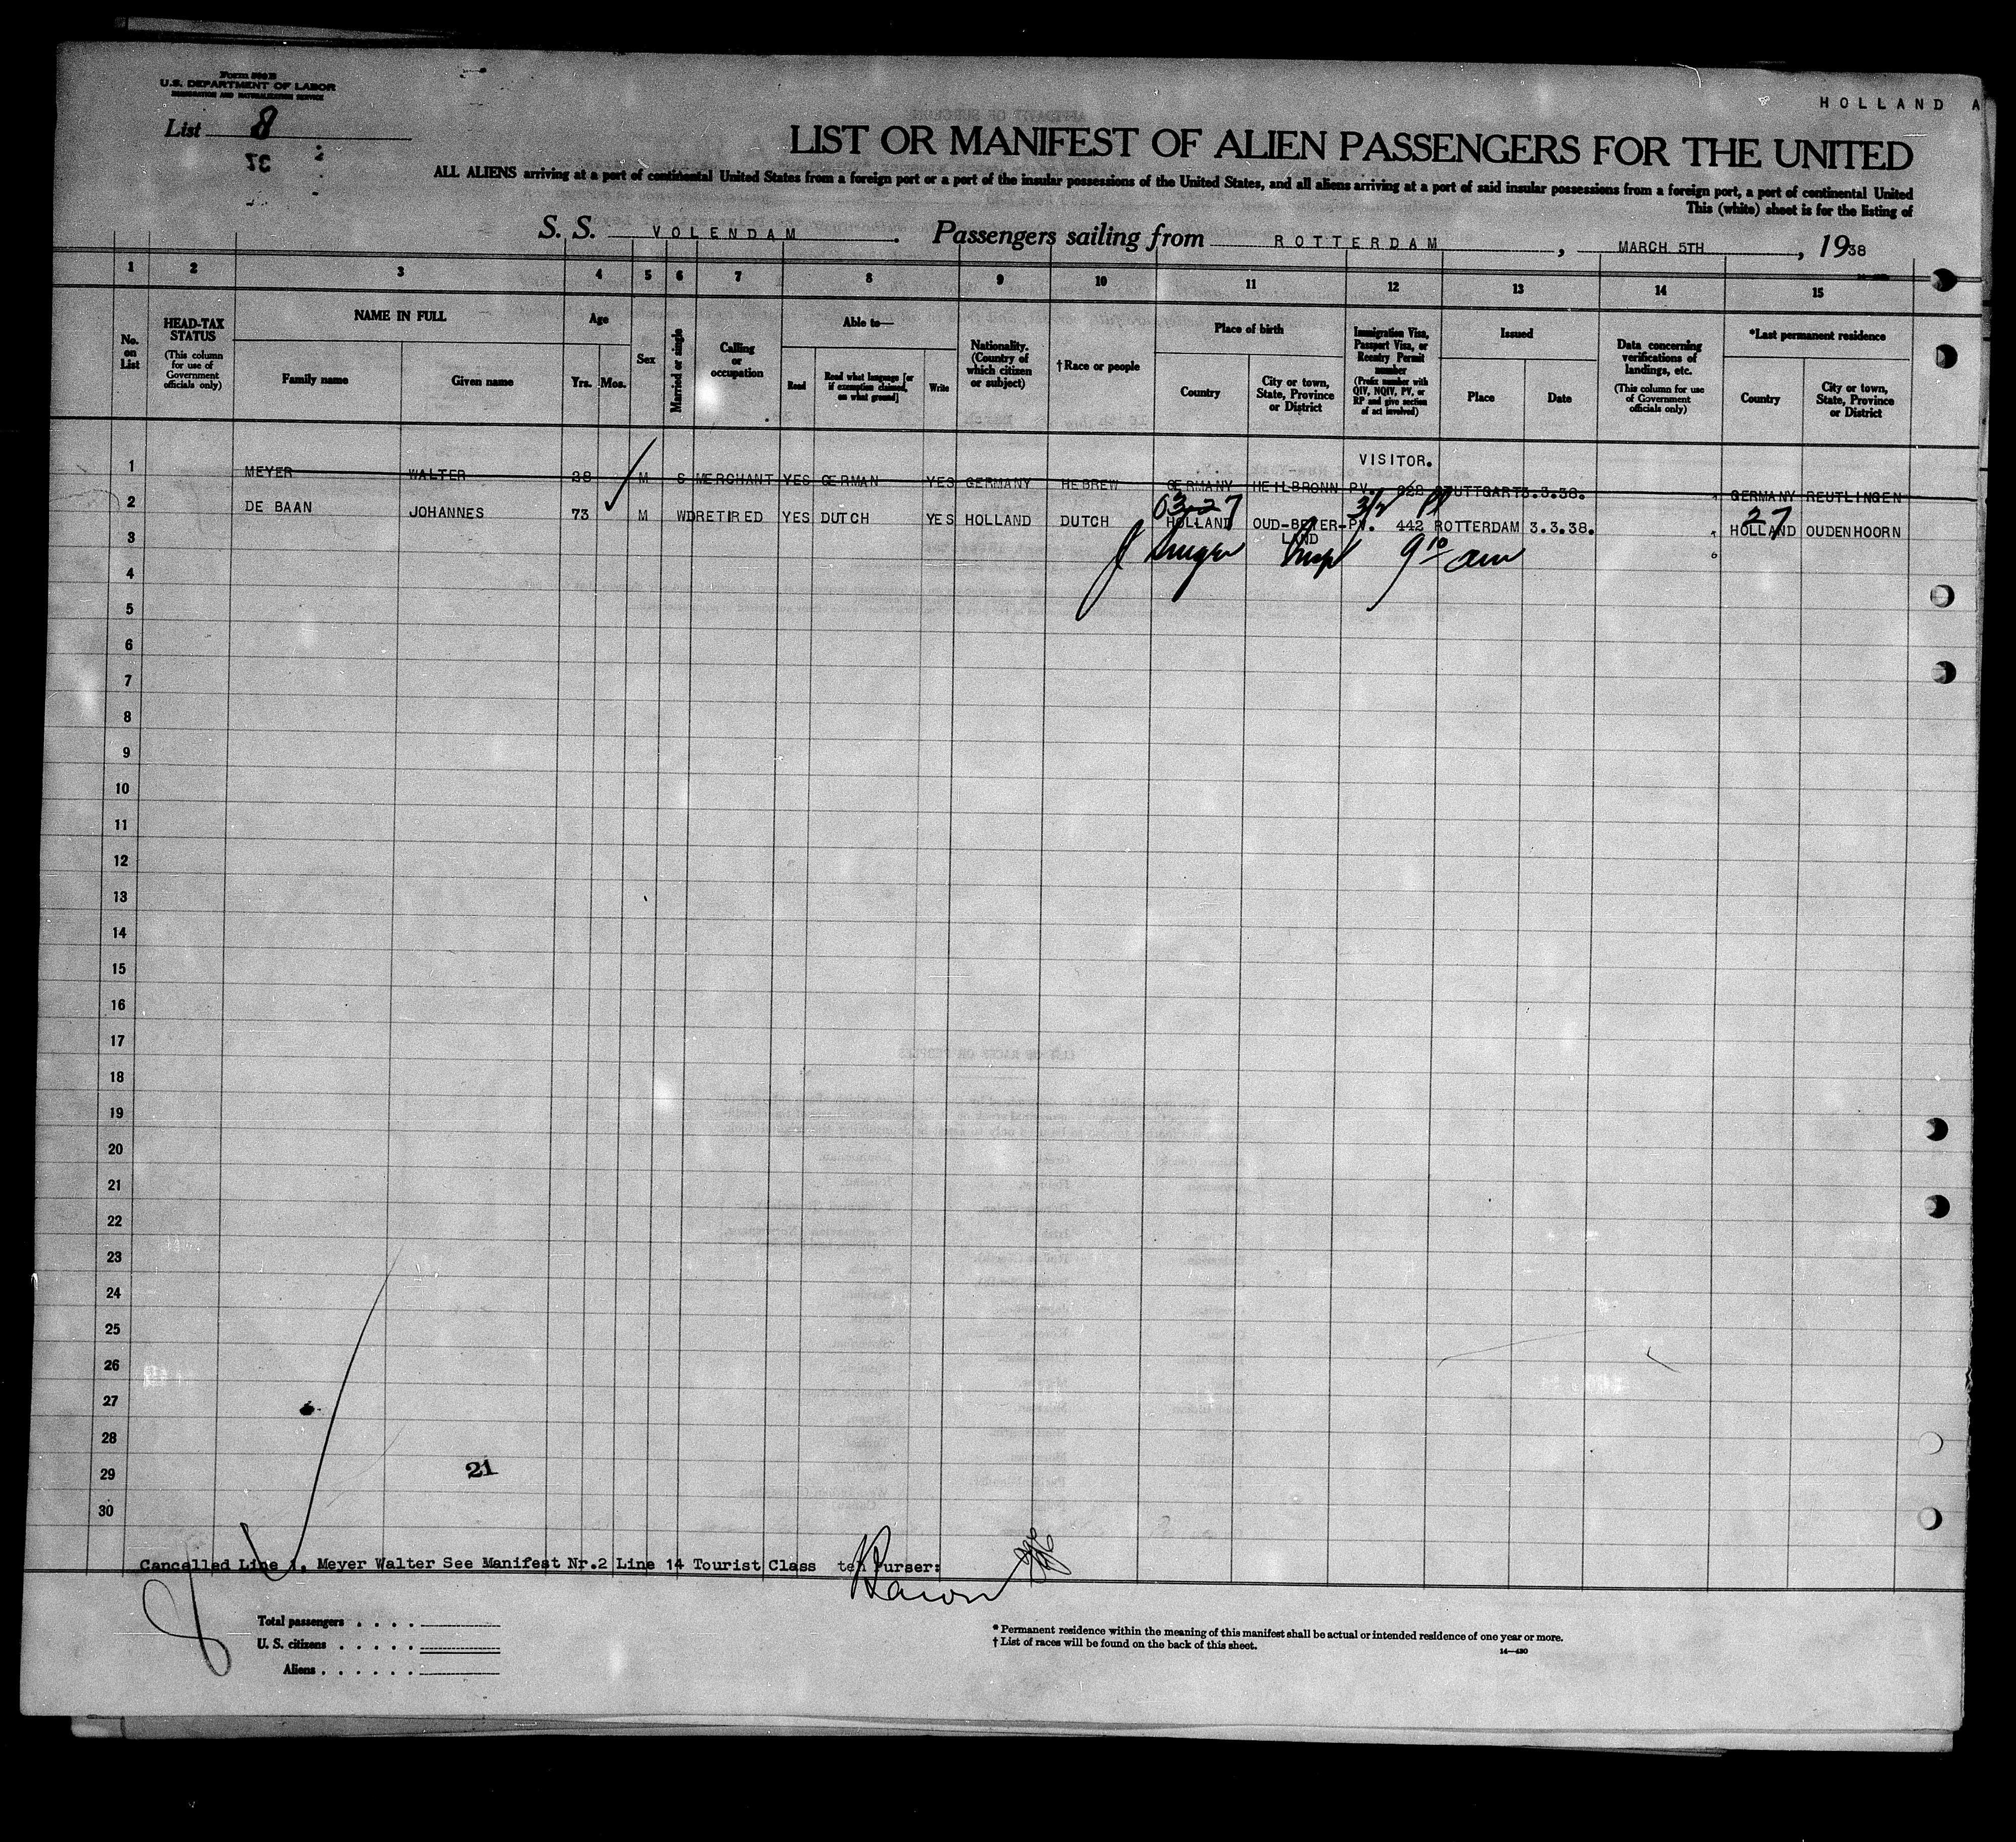 Form 500 B
U.S. DEPARTMENT OF LABOR
IMMIGRATION AND NATURALIZATION SERVICE
HOLLAND A
List 8
LIST OR MANIFEST OF ALIEN PASSENGERS FOR THE UNITED
ALL ALIENS arriving at a port of continental United States from a foreign port or a port of the insular possessions of the United States, and all aliens arriving at a port of said insular possessions from a foreign port, a port of continental United
This (white) sheet is for the listing of
S. S. VOLENDAM. Passengers sailing from ROTTERDAM, MARCH 5TH, 1938
1 2 3 4 5 6 7 8 9 10 11 12 13 14 15
No. on List
HEAD-TAX STATUS
(This column for use of Government officials only)
NAME IN FULL
Family name
Given name
Age
Yrs. Mos.
Sex
Married or single
Calling or occupation
Able to—
Read
Read what language [or if exemption claimed, on what ground]
Write
Nationality. (Country of which citizen or subject)
†Race or people
Place of birth
Country
City or town, State, Province or District
Immigration Visa, Passport Visa, or Reentry Permit number
(Prefix number with QIV, NQIV, PV, or RP and give section of act involved)
Issued
Place
Date
Data concerning verifications of landings, etc.
(This column for use of Government officials only)
*Last permanent residence
Country
City or town, State, Province or District
VISITOR.
1 MEYER WALTER 28 M S MERCHANT YES GERMAN YES GERMANY HEBREW GERMANY HEILBRONN PV. 828 STUTTGART 3.3.38. GERMANY REUTLINGEN
03-27 27
2 DE BAAN JOHANNES 73 M WD RETIRED YES DUTCH YES HOLLAND DUTCH HOLLAND OUD-BEIER- PV. 442 ROTTERDAM 3.3.38. HOLLAND OUDENHOORN
LAND
3 Insp 9 10 am
4
5
6
7
8
9
10
11
12
13
14
15
16
17
18
19
20
21
22
23
24
25
26
27
28
29
21
30
Cancelled Line 1, Meyer Walter See Manifest Nr.2 Line 14 Tourist Class teh Purser:
Total passengers . . . .
U. S. citizens . . . . .
Aliens . . . . . .
* Permanent residence within the meaning of this manifest shall be actual or intended residence of one year or more.
† List of races will be found on the back of this sheet.
14—430